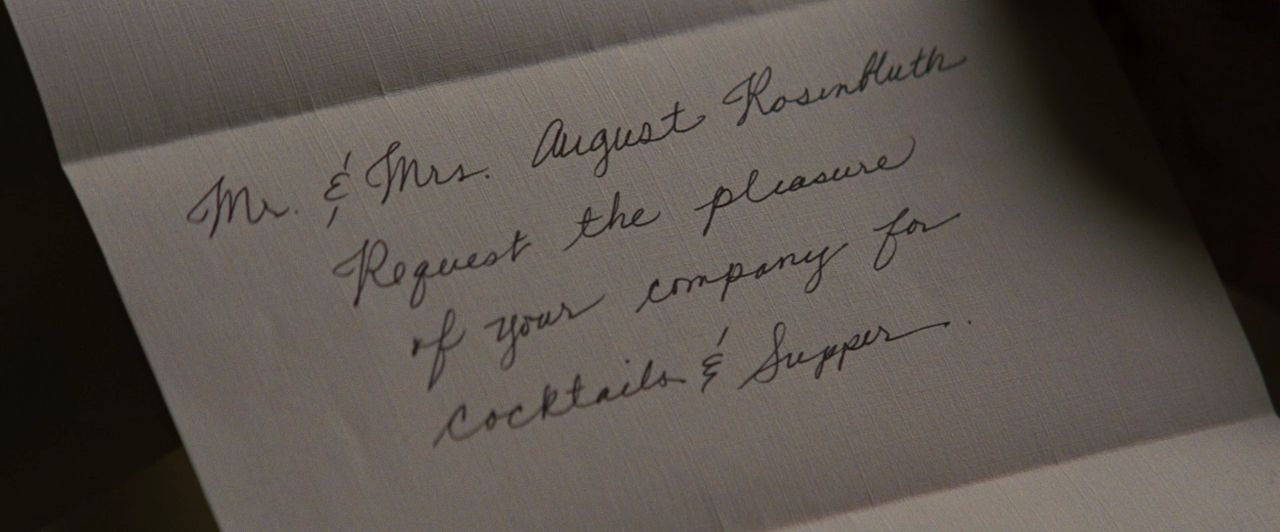 Mr. & Mrs. August Rosenbluth
Request the pleasure
of your company for
cocktails & Supper.